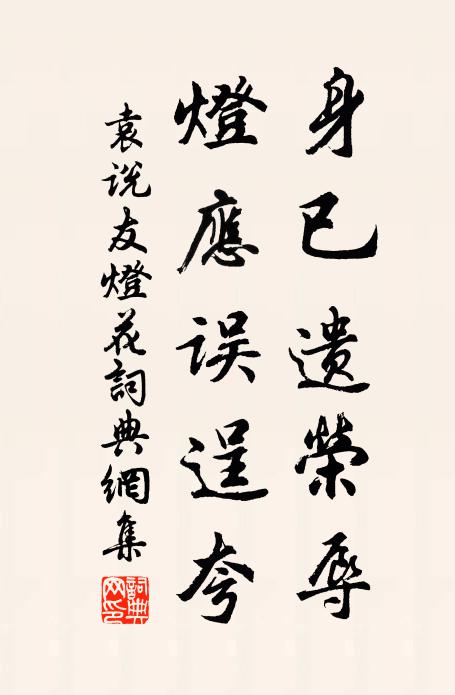 身已遗榮辱
燈應误逞夸
袁说友燈花詞典網集
詞典网印